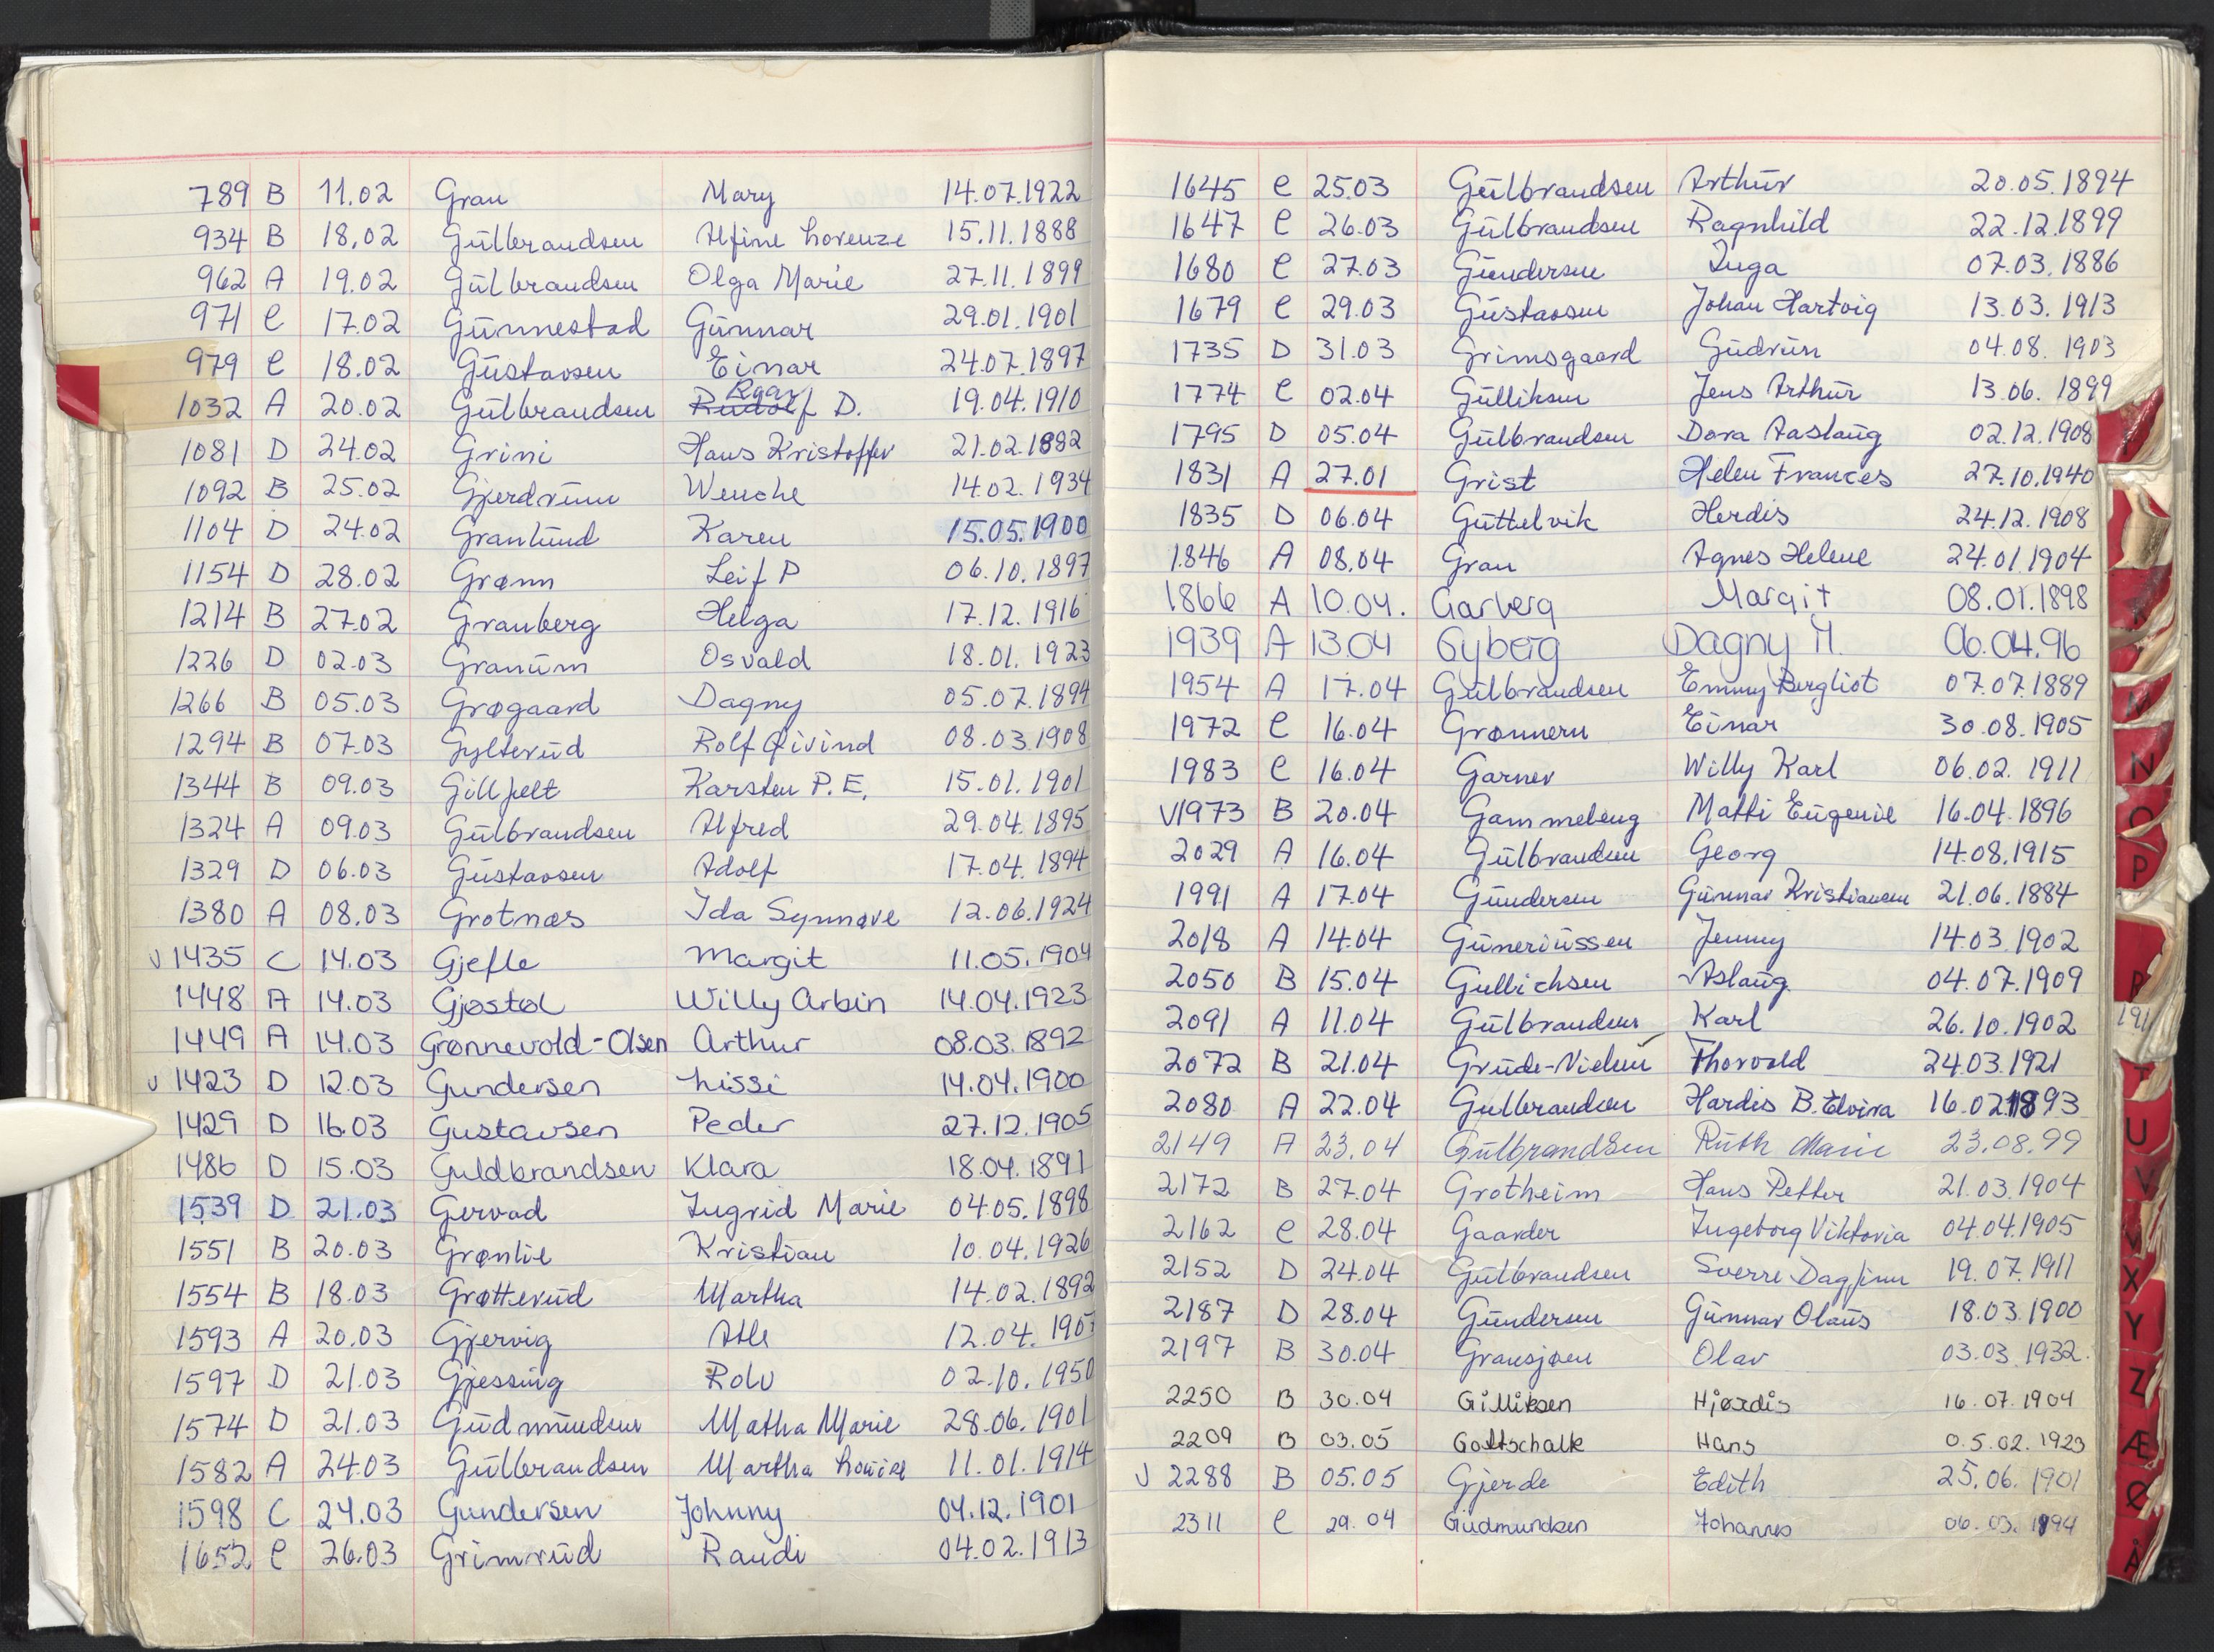 789 B 11.02 Gran Mary 14.07.1922
934 B 18.02 Gulbrandsen Alfine Lorenze 15.11.1888
962 A 19.02 Gulbrandsen Olga Marie 27.11.1899
971 C 17.02 Gunnestad Gunnar 29.01.1901
979 C 18.02 Gustavsen Einar 24.07.1897
1032 A 20.02 Gulbrandsen Rudolf D. 19.04.1910
1081 D 24.02 Grini Hans Kristoffer 21.02.1882
1092 B 25.02 Gjerdrum Wenche 14.02.1934
1104 D 24.02 Granlund Karen 15.05.1900
1154 D 28.02 Grønn Leif P 06.10.1897
1214 B 27.02 Granberg Helga 17.12.1916
1226 D 02.03 Granum Osvald 18.01.1923
1266 B 05.03 Grøgaard Dagny 05.07.1894
1294 B 07.03 Gylterud Rolf Øivind 08.03.1908
1344 B 09.03 Gillfelt Karsten P. E. 15.01.1901
1324 A 09.03 Gulbrandsen Alfred 29.04.1895
1329 D 06.03 Gustavsen Adolf 17.04.1894
1380 A 08.03 Grotnæs Ida Synnøve 12.06.1924
V 1435 C 14.03 Gjefle Margit 11.05.1904
1448 A 14.03 Gjøstøl Willy Arbin 14.04.1923
1449 A 14.03 Grønnevold-Olsen Arthur 08.03.1892
V 1423 D 12.03 Gundersen Lissi 14.04.1900
1429 D 16.03 Gustavsen Peder 27.12.1905
1486 D 15.03 Guldbrandsen Klara 18.04.1891
1539 D 21.03 Gervad Ingrid Marie 04.05.1898
1551 B 20.03 Grønlie Kristian 10.04.1926
1554 B 18.03 Grøtterud Martha 14.02.1892
1593 A 20.03 Gjervig Atle 12.04.1907
1597 D 21.03 Gjessing Rolv 02.10.1950
1574 D 21.03 Gudmundsen Matha Marie 28.06.1901
1582 A 24.03 Gulbrandsen Martha Louise 11.01.1914
1598 C 24.03 Gundersen Johnny 04.12.1901
1652 C 26.03 Grimsrud Randi 04.02.1913
1645 C 25.03 Gulbrandsen Arthur 20.05.1894
1647 C 26.03 Gulbrandsen Ragnhild 22.12.1899
1680 C 27.03 Gundersen Inga 07.03.1886
1679 C 29.03 Gustavsen Johan Hartvig 13.03.1913
1735 D 31.03 Grimsgaard Gudrun 04.08.1903
1774 C 02.04 Gulliksen Jens Arthur 13.06.1899
1795 D 05.04 Gulbrandsen Dora Aaslaug 02.12.1908
1831 A 27.01 Grist Helen Frances 27.10.1940
1835 D 06.04 Guttelvik Herdis 24.12.1908
1846 A 08.04 Gran Agnes Helene 24.01.1904
1866 A 10.04. Garberg Margit 08.01.1898
1939 A 13.04 Gyberg Dagny M. 06.04.96
1954 A 17.04 Gulbrandsen Emmy Bergliot 07.07.1889
1972 C 16.04 Grønnern Einar 30.08.1905
1983 C 16.04 Garner Willy Karl 06.02.1911
V1973 B 20.04 Gammeleng Matti Eugenie 16.04.1896
2029 A 16.04 Gulbrandsen Georg 14.08.1915
1991 A 17.04 Gundersen Gunnar Kristiansen 21.06.1884
2018 A 14.04 Guneriussen Jenny 14.03.1902
2050 B 15.04 Gullichsen Aslaug 04.07.1909
2091 A 11.04 Gulbrandsen Karl 26.10.1902
2072 B 21.04 Grude-Nielsen Thorvald 24.03.1921
2080 A 22.04 Gulbrandsen Hardis B. Elvira 16.02.1893
2149 A 23.04 Gulbrandsen Ruth Marie 23.08.99
2172 B 27.04 Grotheim Hans Petter 21.03.1904
2162 C 28.04 Gaarder Ingeborg Viktoria 04.04.1905
2152 D 24.04 Gulbrandsen Sverre Dagfinn 19.07.1911
2187 D 28.04 Gundersen Gunnar Olaus 18.03.1900
2197 B 30.04 Gransjøen Olav 03.03.1932.
2250 B 30.04 Gilliksen Hjørdis 16.07.1904
2209 B 03.05 Gottschalk Hans 0.5.02.1923
V 2288 B 05.05 Gjerde Edith 25.06.1901
2311 C 29.04 Gudmundsen Johannes 06.03.1894
N
O
P
R
T
U
V
X
Y
Z
Æ
Ø
Å